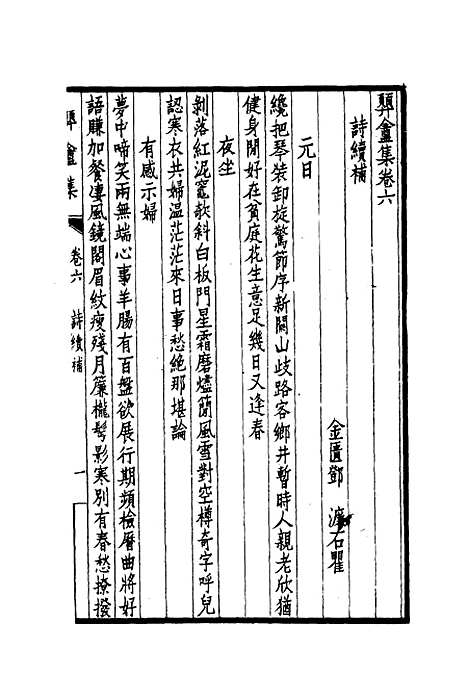 畀盦集卷六
詩續補
金匱鄧濂石瞿
元日
纔把琴裝卸旋驚節序新關山歧路客鄉井暫時人親老欣猶
健身閒好在貧庭花生意足幾日又逢春
夜坐
剝落紅泥竈欹斜白板門星霜磨燼蕳風雪對空樽奇字呼兒
認寒衣共婦温茫茫來日事愁絕那堪論
有感示婦
夢中啼笑兩無端心事羊腸有百盤欲展行期頻檢曆曲將好
語賺加餐凄風鏡閣眉紋瘦殘月簾櫳髩影寒別有春愁撩撥
盦集
卷六
詩續補
一